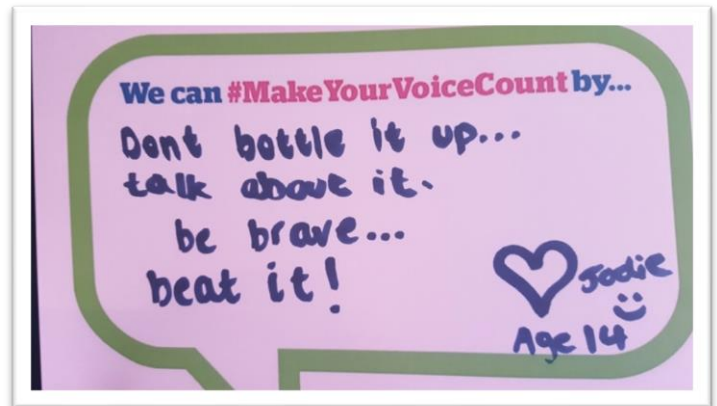 We can #MakeYourVoiceCount by...
Dont bottle it up...
talk about it.
be brave...
beat it!
Jodie
Age 14